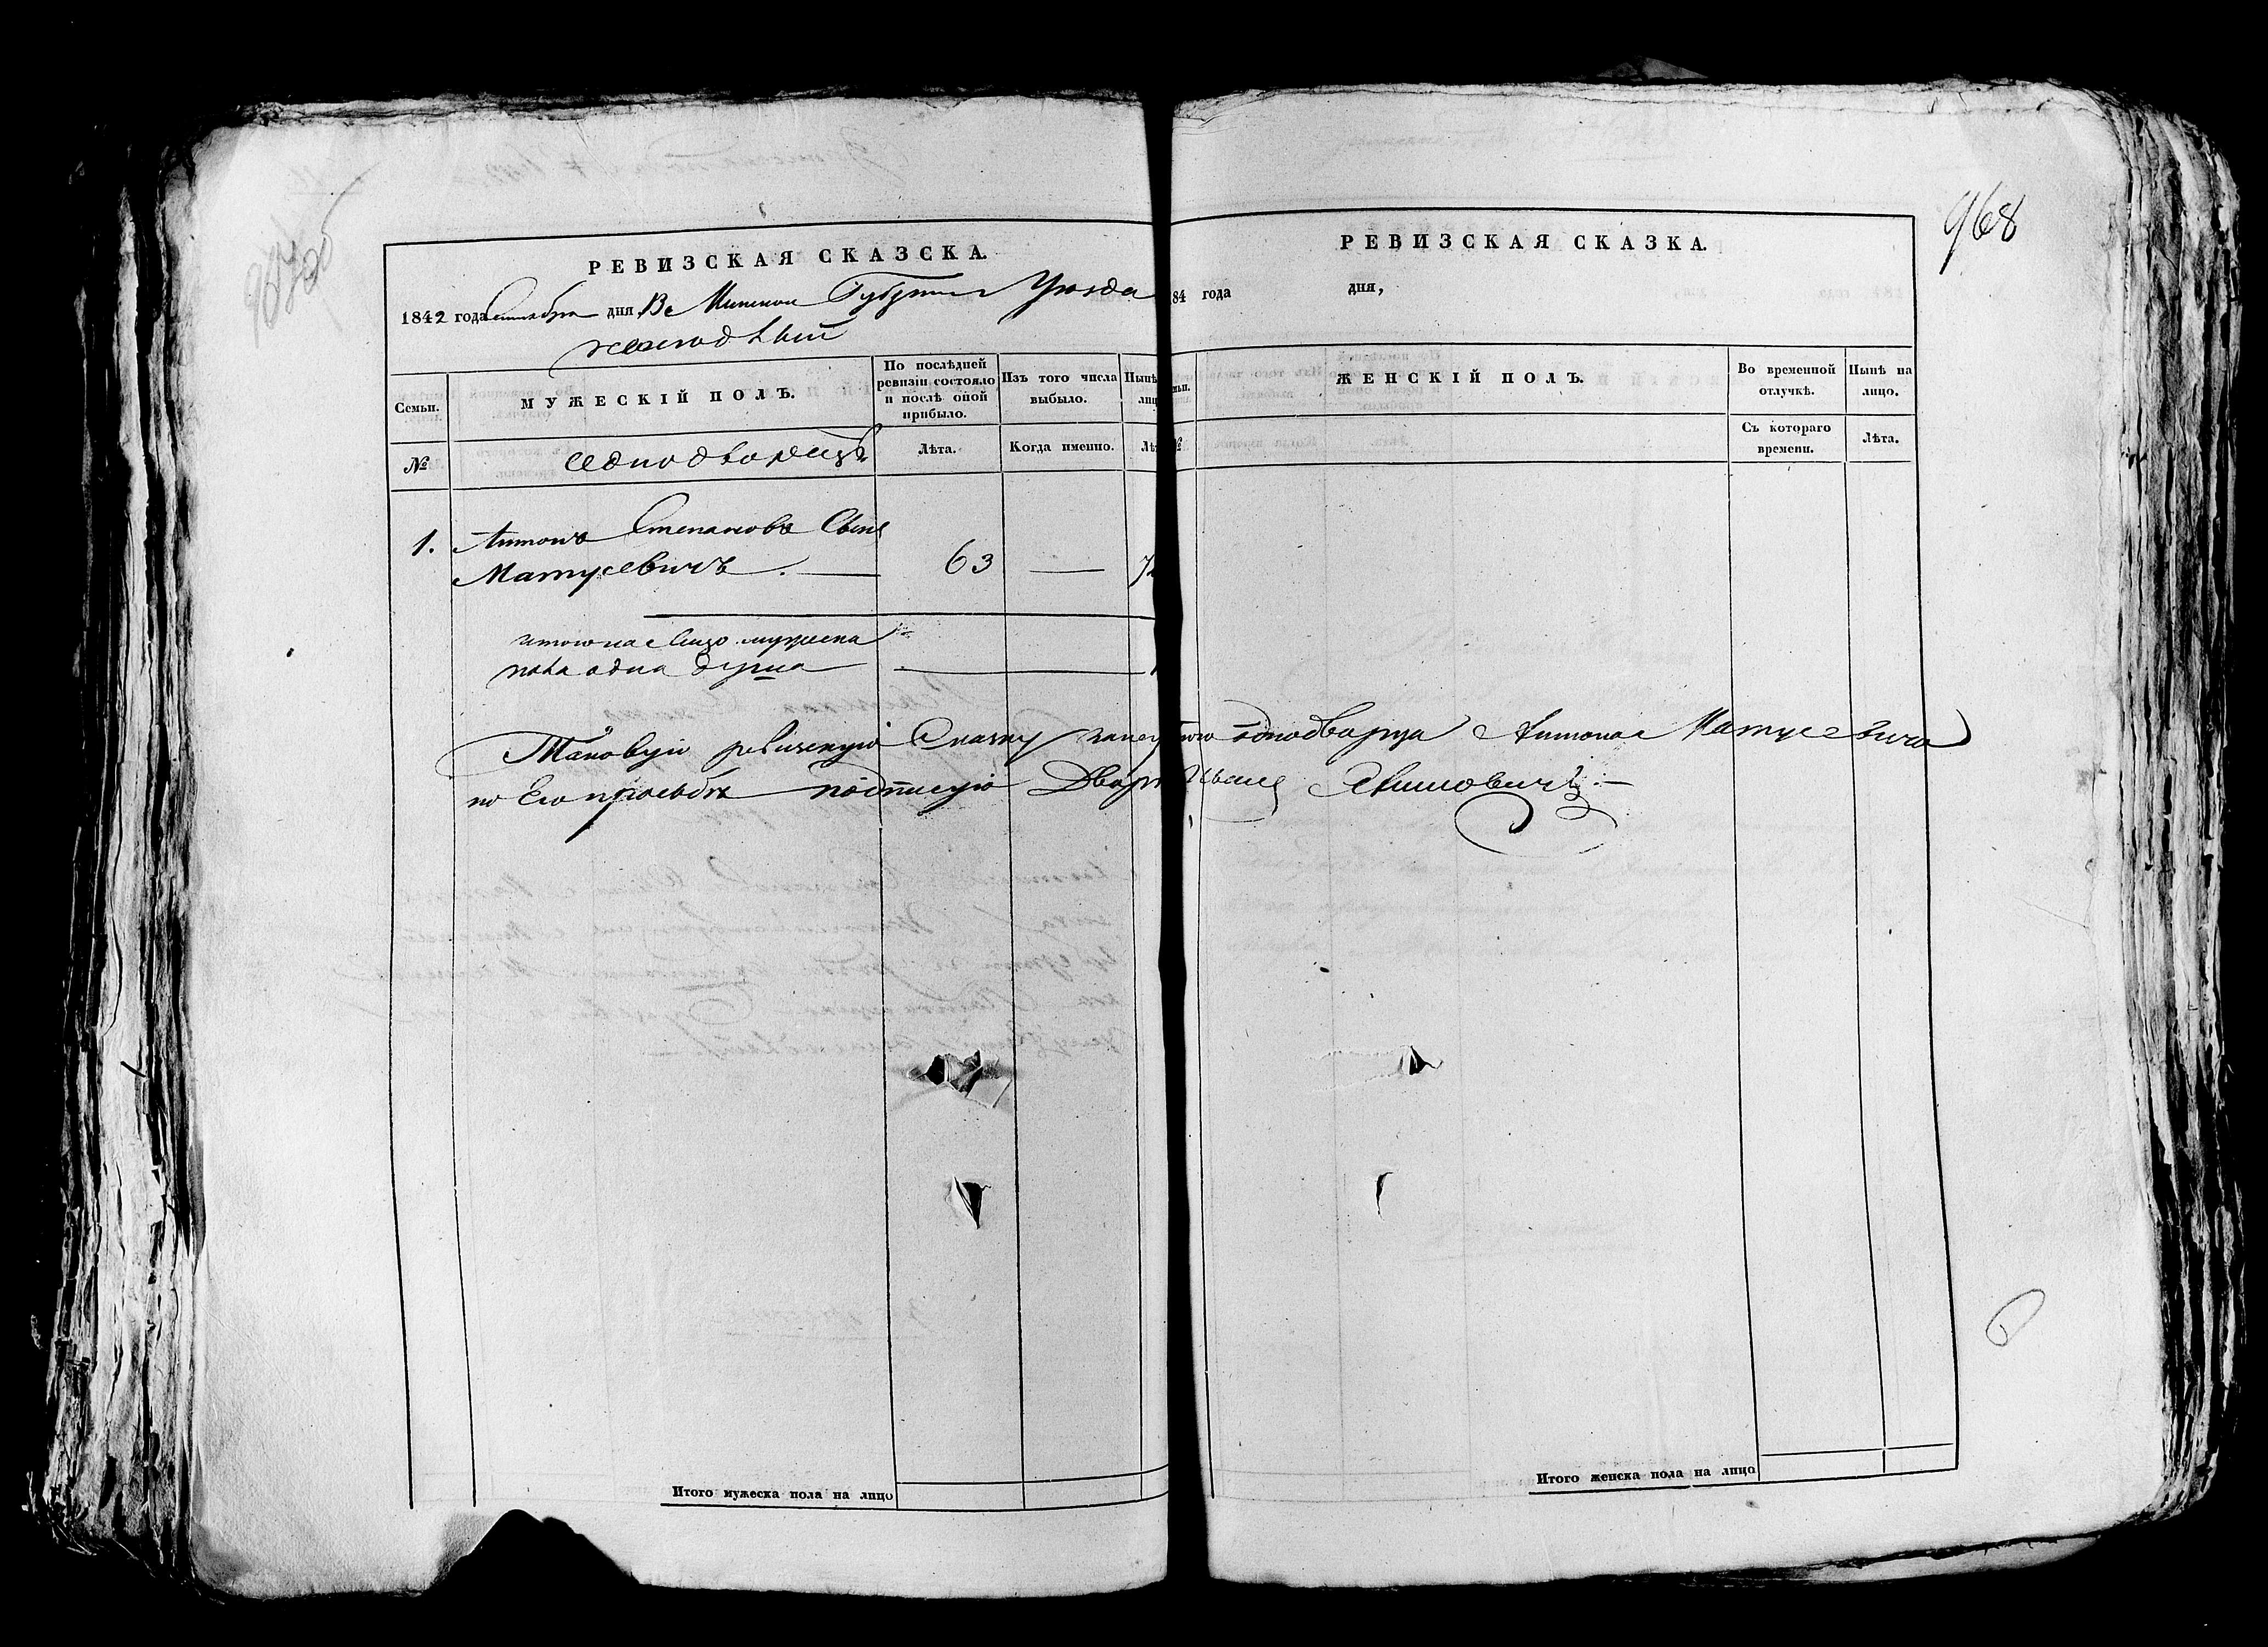 968
РЕВИЗСКАЯ СКАЗСКА.
1842 года Сентября дня Въ Минской Губернии Уезда
РЕВИЗСКАЯ СКАЗКА.
184 года дня,
Семьи.
МУЖЕСКІЙ ПОЛЪ.
По послѣдней ревизіи состояло и послѣ оной прибыло.
Изъ того числа выбыло.
Нынѣ
№
Однодворецъ
Лѣта.
Когда именно.
Лѣ
ЖЕНСКІЙ ПОЛЪ.
Во временной отлучкѣ.
Нынѣ на лицо.
№
Съ котораго времени.
Лѣта.
1. Антонъ Степановъ Сынъ
Матусевичъ. — 63 — 72
итого на лицо мужеска
пола одна душа — 1
Таковую ревизскую Сказку однодворца Антона Матусевича
по Его прозьбѣ подписую Двор Иванъ
Итого мужеска пола на лицо
Итого женска пола на лицо